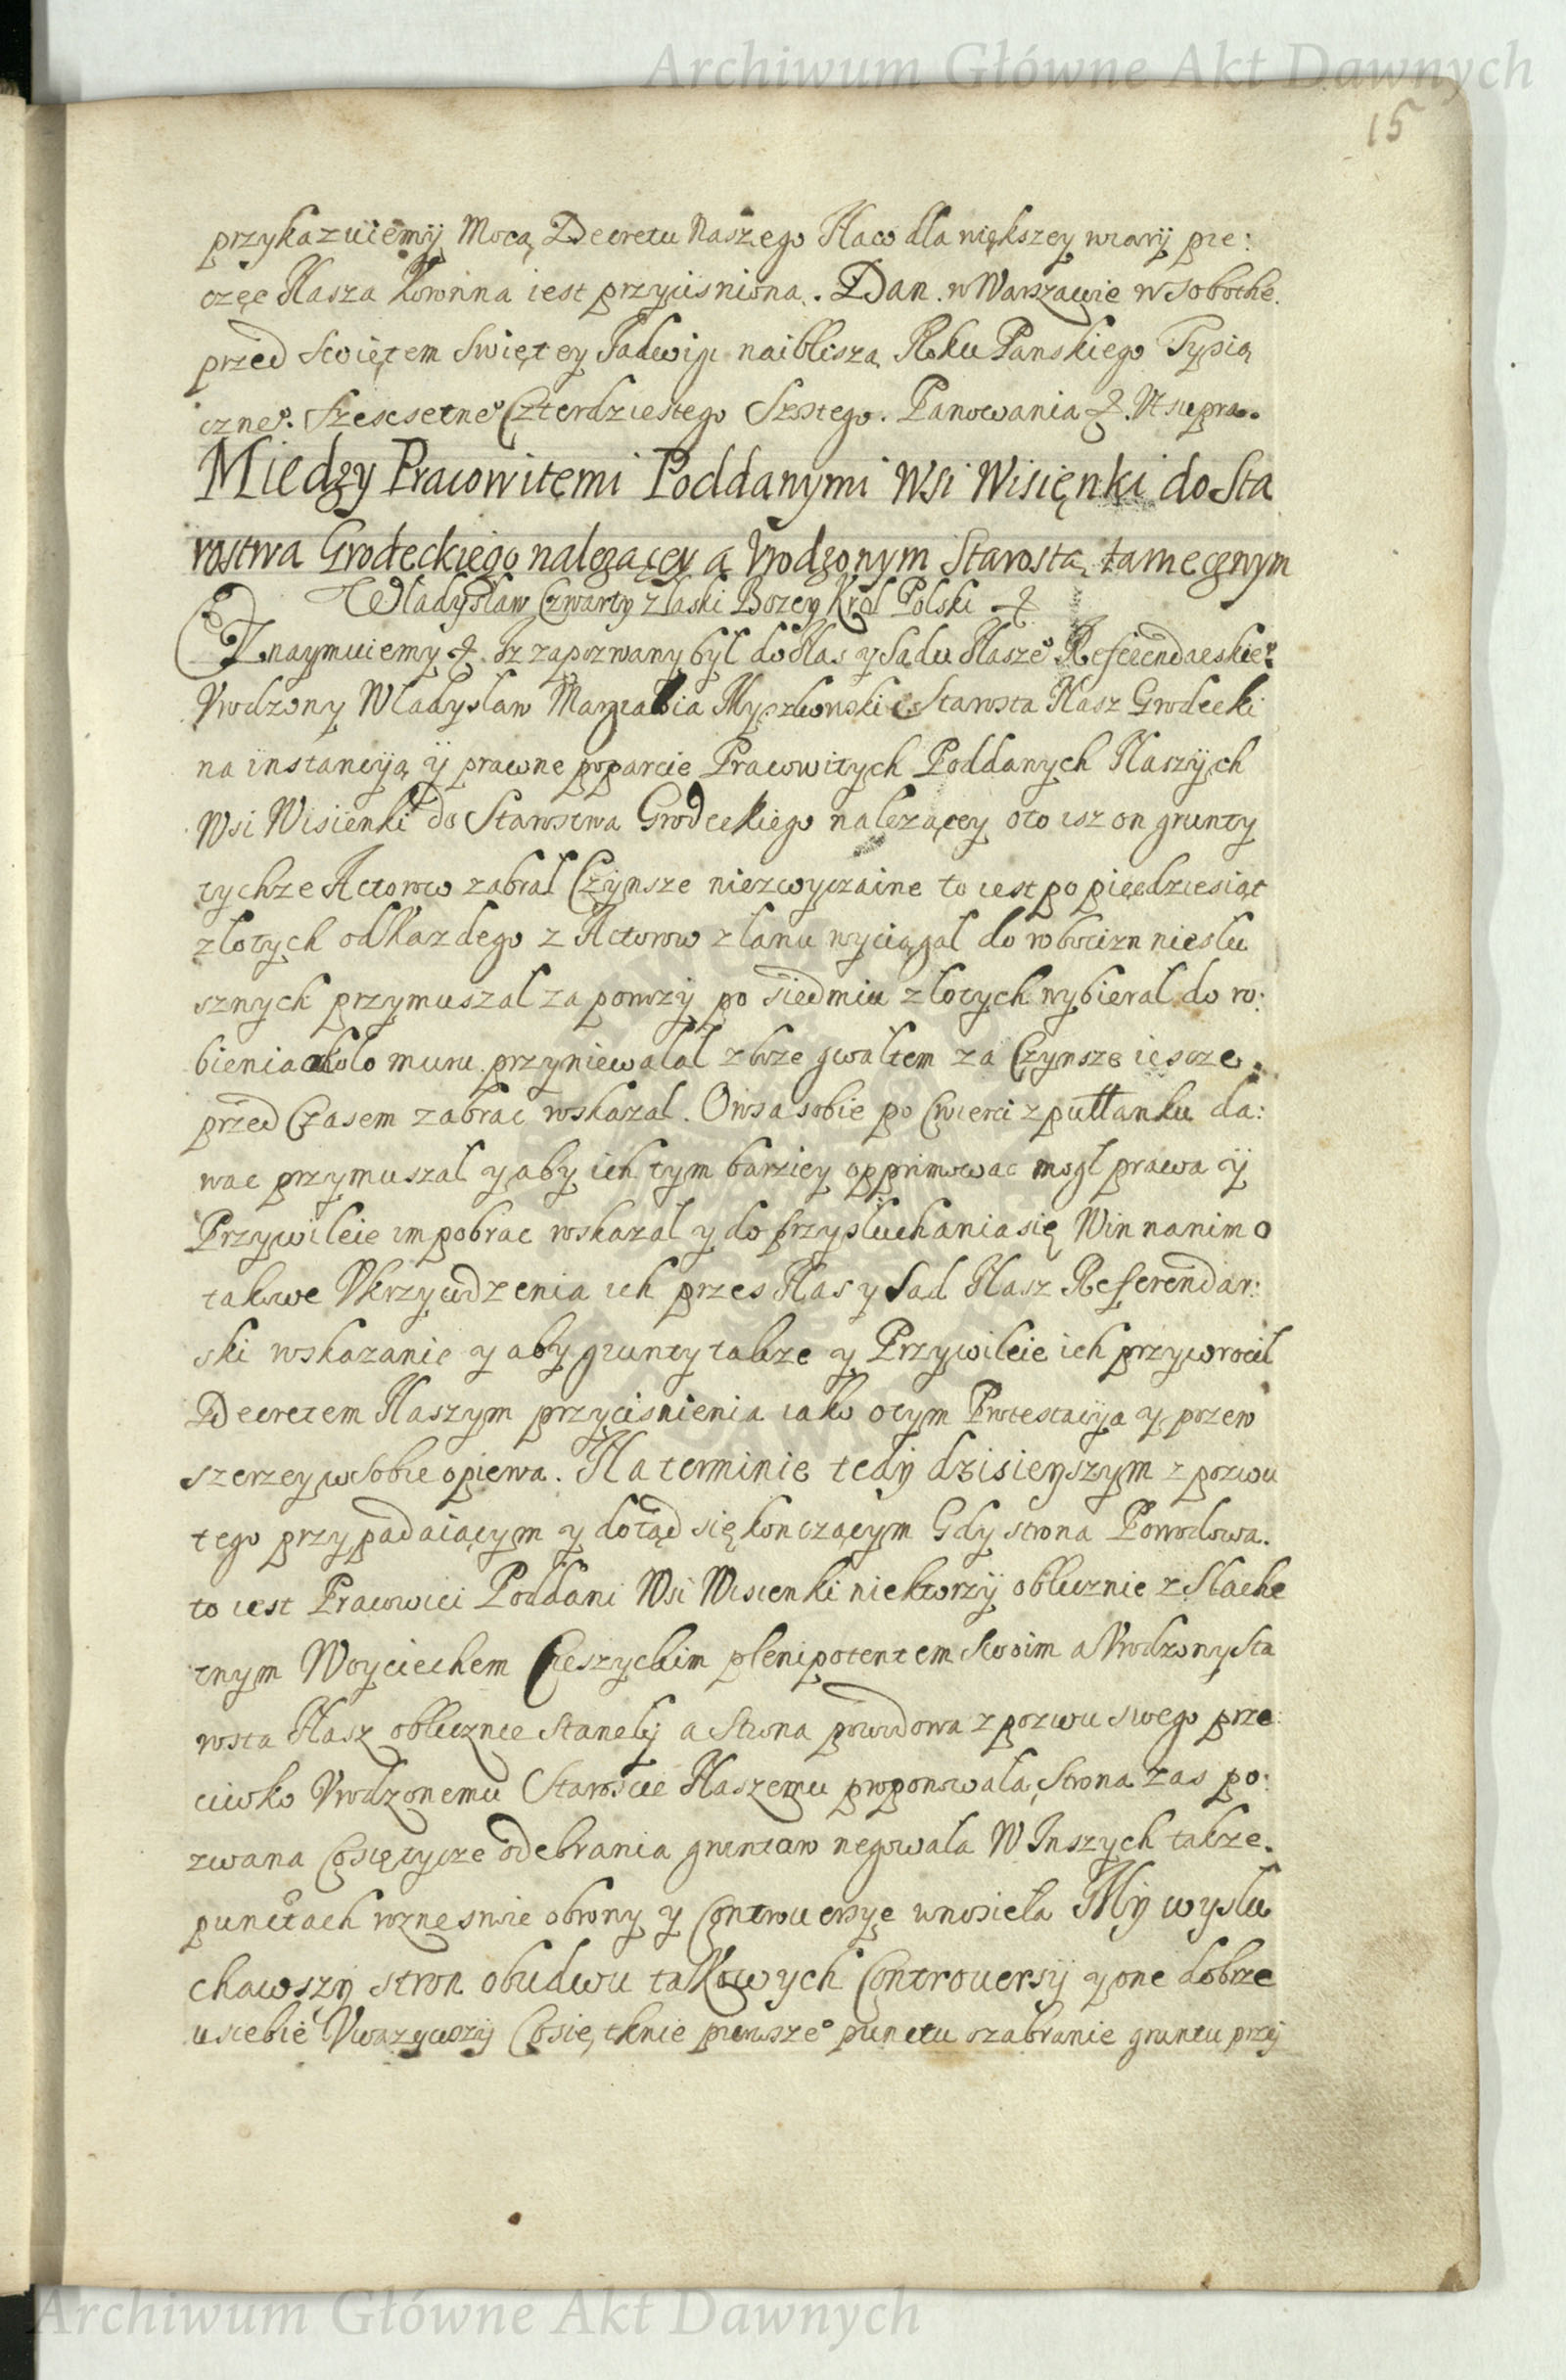 Archiwum Główne Akt Dawnych
15
przykazuiemy Mocą Decretu Naszego Na co dla większey wiary pie:
częc Nasza Koronna iest przycisniona. Dan. w Warszawie w Sobothe.
przed Swiętem Swiętey Jadwigi naiblisza Roku Panskiego Tysią
czneº. Szescsetneº Czterdziestego Szostego. Panowania &. Ut supra.
Miedzy Pracowitemi Poddanymi Wsi Wisięnki do Sta
rostwa Grodeckiego nalezącey a Vrodzonym Starostą tamecznym
Wladyslaw Czwarty z laski Bozey Krol Polski &
Znaymuiemy &. Iz zapozwany był do Nas y Sądu Naszeº Referendarskieº
Vrodzony Wladyslaw Margrabia Myszkowski Starosta Nasz Grodecki
na instancyą y prawne poparcie Pracowitych Poddanych Naszych
Wsi Wisienki do Starostwa Grodeckiego nalezącey oto isz on grunty
tychze Actorow zabral Czynsze niezwyczaine to iest po pięcdziesiąt
zlotych od Kazdego z Actorow z lanu wyciągal do robocizn nieslu
sznych przymuszal za powozy po siedmiu zlotych wybieral do ro:
bienia okolo muru przyniewalal zboze gwaltem za Czynsze iescze.
przed Czasem zabrac wskazal. Owsa sobie po Cwierci z pultanku da:
wac przymuszal y aby ich tym barziey opprimowac mogl prawa y
Przywileie im pobrac wskazal y do przysluchania się Win na nim o
takowe Vkrzywdzenia ich przes Nas y Sad Nasz Referendar:
ski wskazanie y aby grunty takze y Przywileie ich przywrocil
Decretem Naszym przycisnienia iako o tym Protestacya y pozew
szerzey w Sobie opiewa. Na terminie tedy dzisieyszym z pozwu
tego przypadaiącym y dotąd się konczącym Gdy strona Powodowa.
to iest Pracowici Poddani Wsi Wisienki niektorzy oblicznie z Slache
tnym Woyciechem Cieszyckim plenipotentem Swoim a Vrodzony Sta
rosta Nasz oblicznie Stanely a Strona powodowa z pozwu swego prze:
ciwko Vrodzonemu Staroscie Naszemu proponowala, Strona zas po:
zwana Co się tycze odebrania gruntow negowala W Inszych takze.
punctach rozne swie obrony y Controuersye wnosiela My wyslu
chawszy stron obudwu takowych Controuersy y one dobrze
u siebie Vwazywszy Co się tknie pierwszeº punctu o zabranie gruntu przy
Archiwum Główne Akt Dawnych